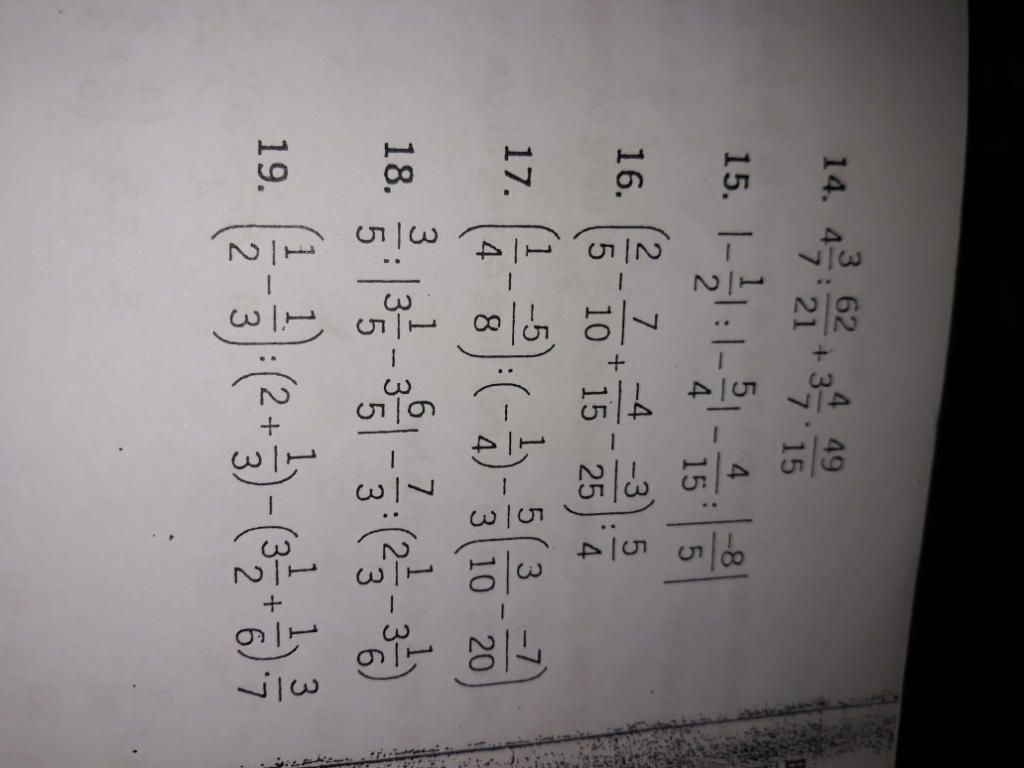 14. 4 3/7 : 62/21 + 3 4/7 · 49/15
15. |-1/2| : |-5/4| - 4/15 : |-8/5|
16. (2/5 - 7/10 + -4/15 - -3/25) : 5/4
17. (1/4 - -5/8) : (-1/4) - 5/3 (3/10 - -7/20)
18. 3/5 : |3 1/5 - 3 6/5| - 7/3 : (2 1/3 - 3 1/6)
19. (1/2 - 1/3) : (2 + 1/3) - (3 1/2 + 1/6) · 3/7